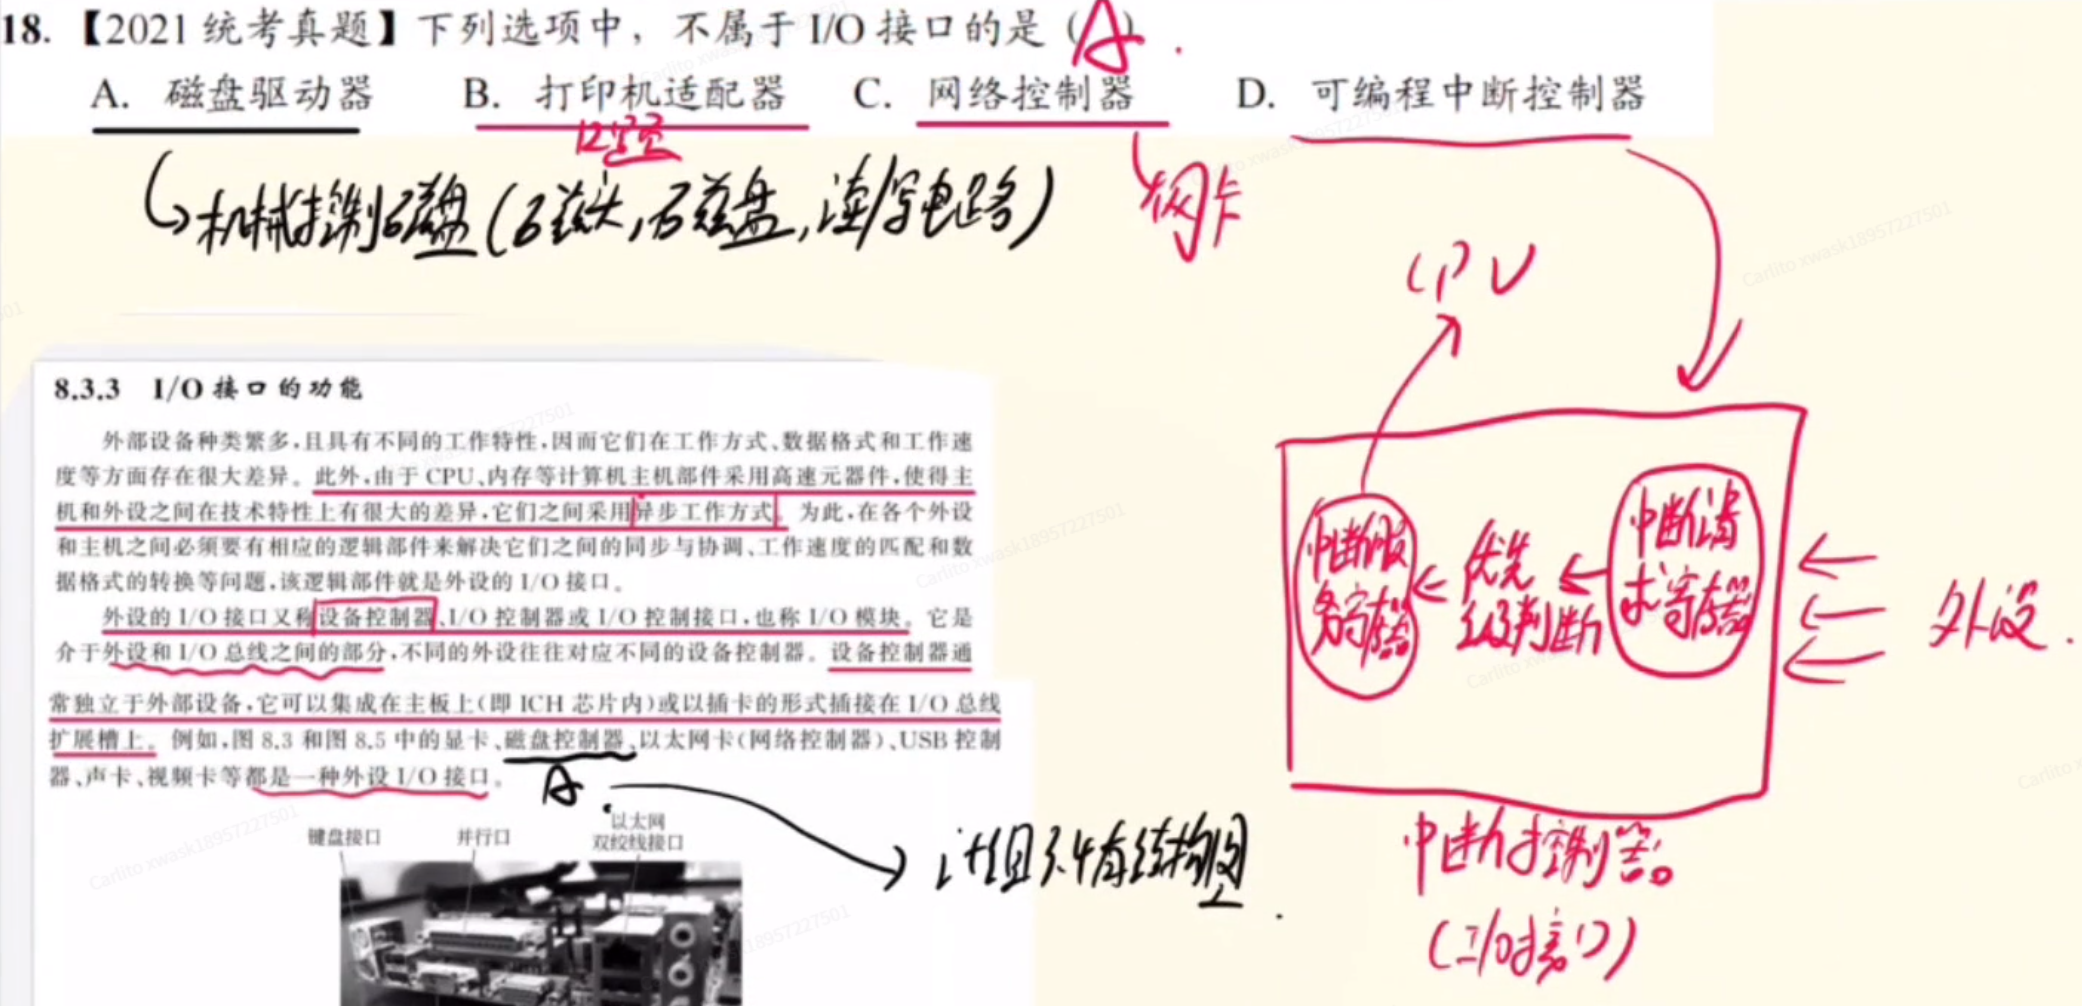 18.【2021 统考真题】下列选项中，不属于 I/O 接口的是（A）.
A. 磁盘驱动器 B. 打印机适配器 C. 网络控制器 D. 可编程中断控制器
机械控制磁盘(磁头,磁盘,读/写电路)
网卡
CPU
中断服务寄存器
优先级判断
中断请求寄存器
外设.
中断控制器
(I/O接口)
8.3.3 I/O 接口的功能
外部设备种类繁多,且具有不同的工作特性,因而它们在工作方式、数据格式和工作速
度等方面存在很大差异。此外,由于 CPU、内存等计算机主机部件采用高速元器件,使得主
机和外设之间在技术特性上有很大的差异,它们之间采用异步工作方式。为此,在各个外设
和主机之间必须要有相应的逻辑部件来解决它们之间的同步与协调、工作速度的匹配和数
据格式的转换等问题,该逻辑部件就是外设的 I/O 接口。
外设的 I/O 接口又称设备控制器、I/O 控制器或 I/O 控制接口,也称 I/O 模块。它是
介于外设和 I/O 总线之间的部分,不同的外设往往对应不同的设备控制器。设备控制器通
常独立于外部设备,它可以集成在主板上(即 ICH 芯片内)或以插卡的形式插接在 I/O 总线
扩展槽上。例如,图 8.3 和图 8.5 中的显卡、磁盘控制器、以太网卡(网络控制器)、USB 控制
器、声卡、视频卡等都是一种外设 I/O 接口。
A.
计组3.4有结构图.
键盘接口 并行口 以太网
双绞线接口
Carlito xwask18957227501